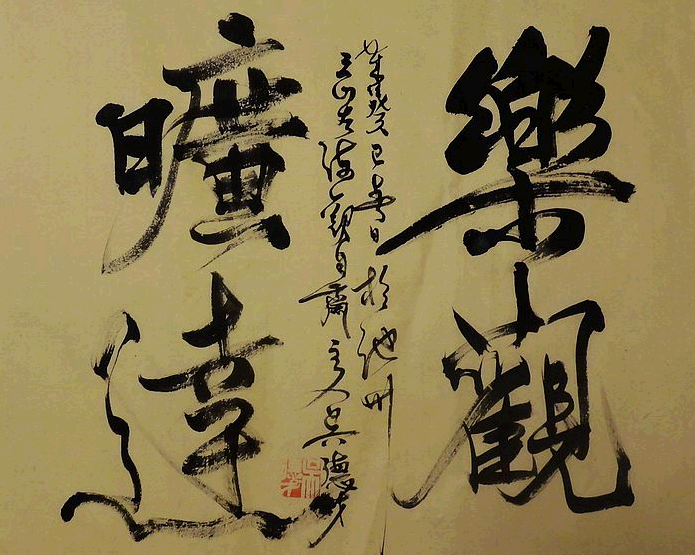 樂觀
曠達
癸巳春日於池州
主人吳德才